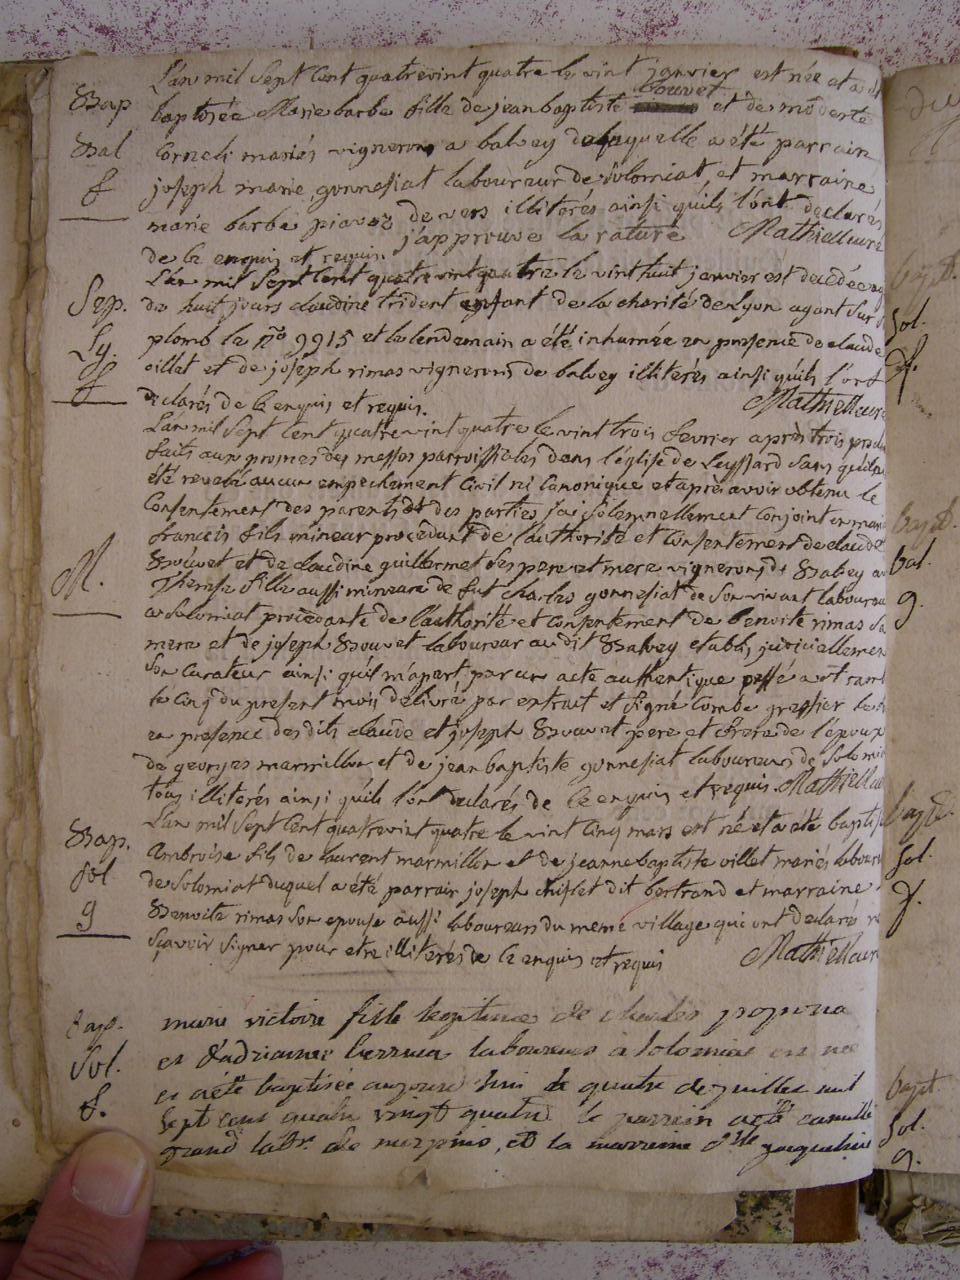 L'an mil sept cent quatrevint quatre le vint janvier est née et a été
Bap baptisée Marie barbe fille de jean baptiste Bouvet et de moderte
Bal Corneli mariés vignerons a balvey de laquelle a été parrain
f joseph marie gonnesiat laboureur de solomiat et marraine
marie barbe piavoz devers illiterés ainsi quils l'ont declarés
de ce enquis et requis. j'approuve la rature Mathieu curé
L'an mil sept cent quatrevint quatre le vint huit janvier est decedée
Sep. de huit jours claudine trident enfant de la charité de Lyon ayant sur
Ly. plomb le no 9915 et le lendemain a été inhumée en presence de claude
f oillet et de joseph rimas vignerons de balvey illiterés ainsi quils l'ont
declarés de ce enquis et requis. Mathieu curé
L'an mil sept cent quatrevint quatre le vint trois fevrier après trois
faits aux prones des messes parroissiales dans l'église de Leyssard sans quil
été revelé aucun empechement civil ni canonique et apres avoir obtenu le
Consentement des parents et des parties j'ai solemnellement conjoint en
francois fils mineur procedant de l'authorité et consentement de claude
M. Bouvet et de claudine guillermet ses pere et mere vignerons de Balvey
Therese fille aussi mineure de fut charles gonnesiat de son vivant laboureur
a solomiat procedante de l'authorité et consentement de benoite rimas sa
mere et de joseph Bouvet laboureur audit Balvey etabli judiciellement
son curateur ainsi quil m'apert par un acte authentique passé
le cinq du present mois delivré par extrait et signé Combe greffier
en presence desdits claude et joseph Bouvet pere et frere de l'epoux
de georges marmillon et de jean baptiste gonnesiat laboureurs de solomiat
tous illiterés ainsi quils l'ont declarés de ce enquis et requis. Mathieu
L'an mil sept cent quatrevint quatre le vint cinq mars est né et a été baptisé
Bap. Ambroise fils de laurent marmillon et de jeanne baptiste villet mariés
sol de Solomiat duquel a été parrain joseph chiflet dit bertrand et marraine
g Benoite rimas son epouse aussi laboureurs du meme village qui ont declarés
sçavoir signer pour etre illiterés de ce enquis et requis Mathieu curé
bap. marie victoire fille legitime de charles
Sol. et d'adrianne laboureurs a solomiat est née
f. et a été baptisée aujourd'hui le quatre de juillet mil
sept cent quatre vingt quatre le parrein a été camille
grand labr. de et la marreine
bapt.
Sol.
f.
bapt.
bal.
g.
bapt.
Sol.
f.
bapt.
Sol.
g.